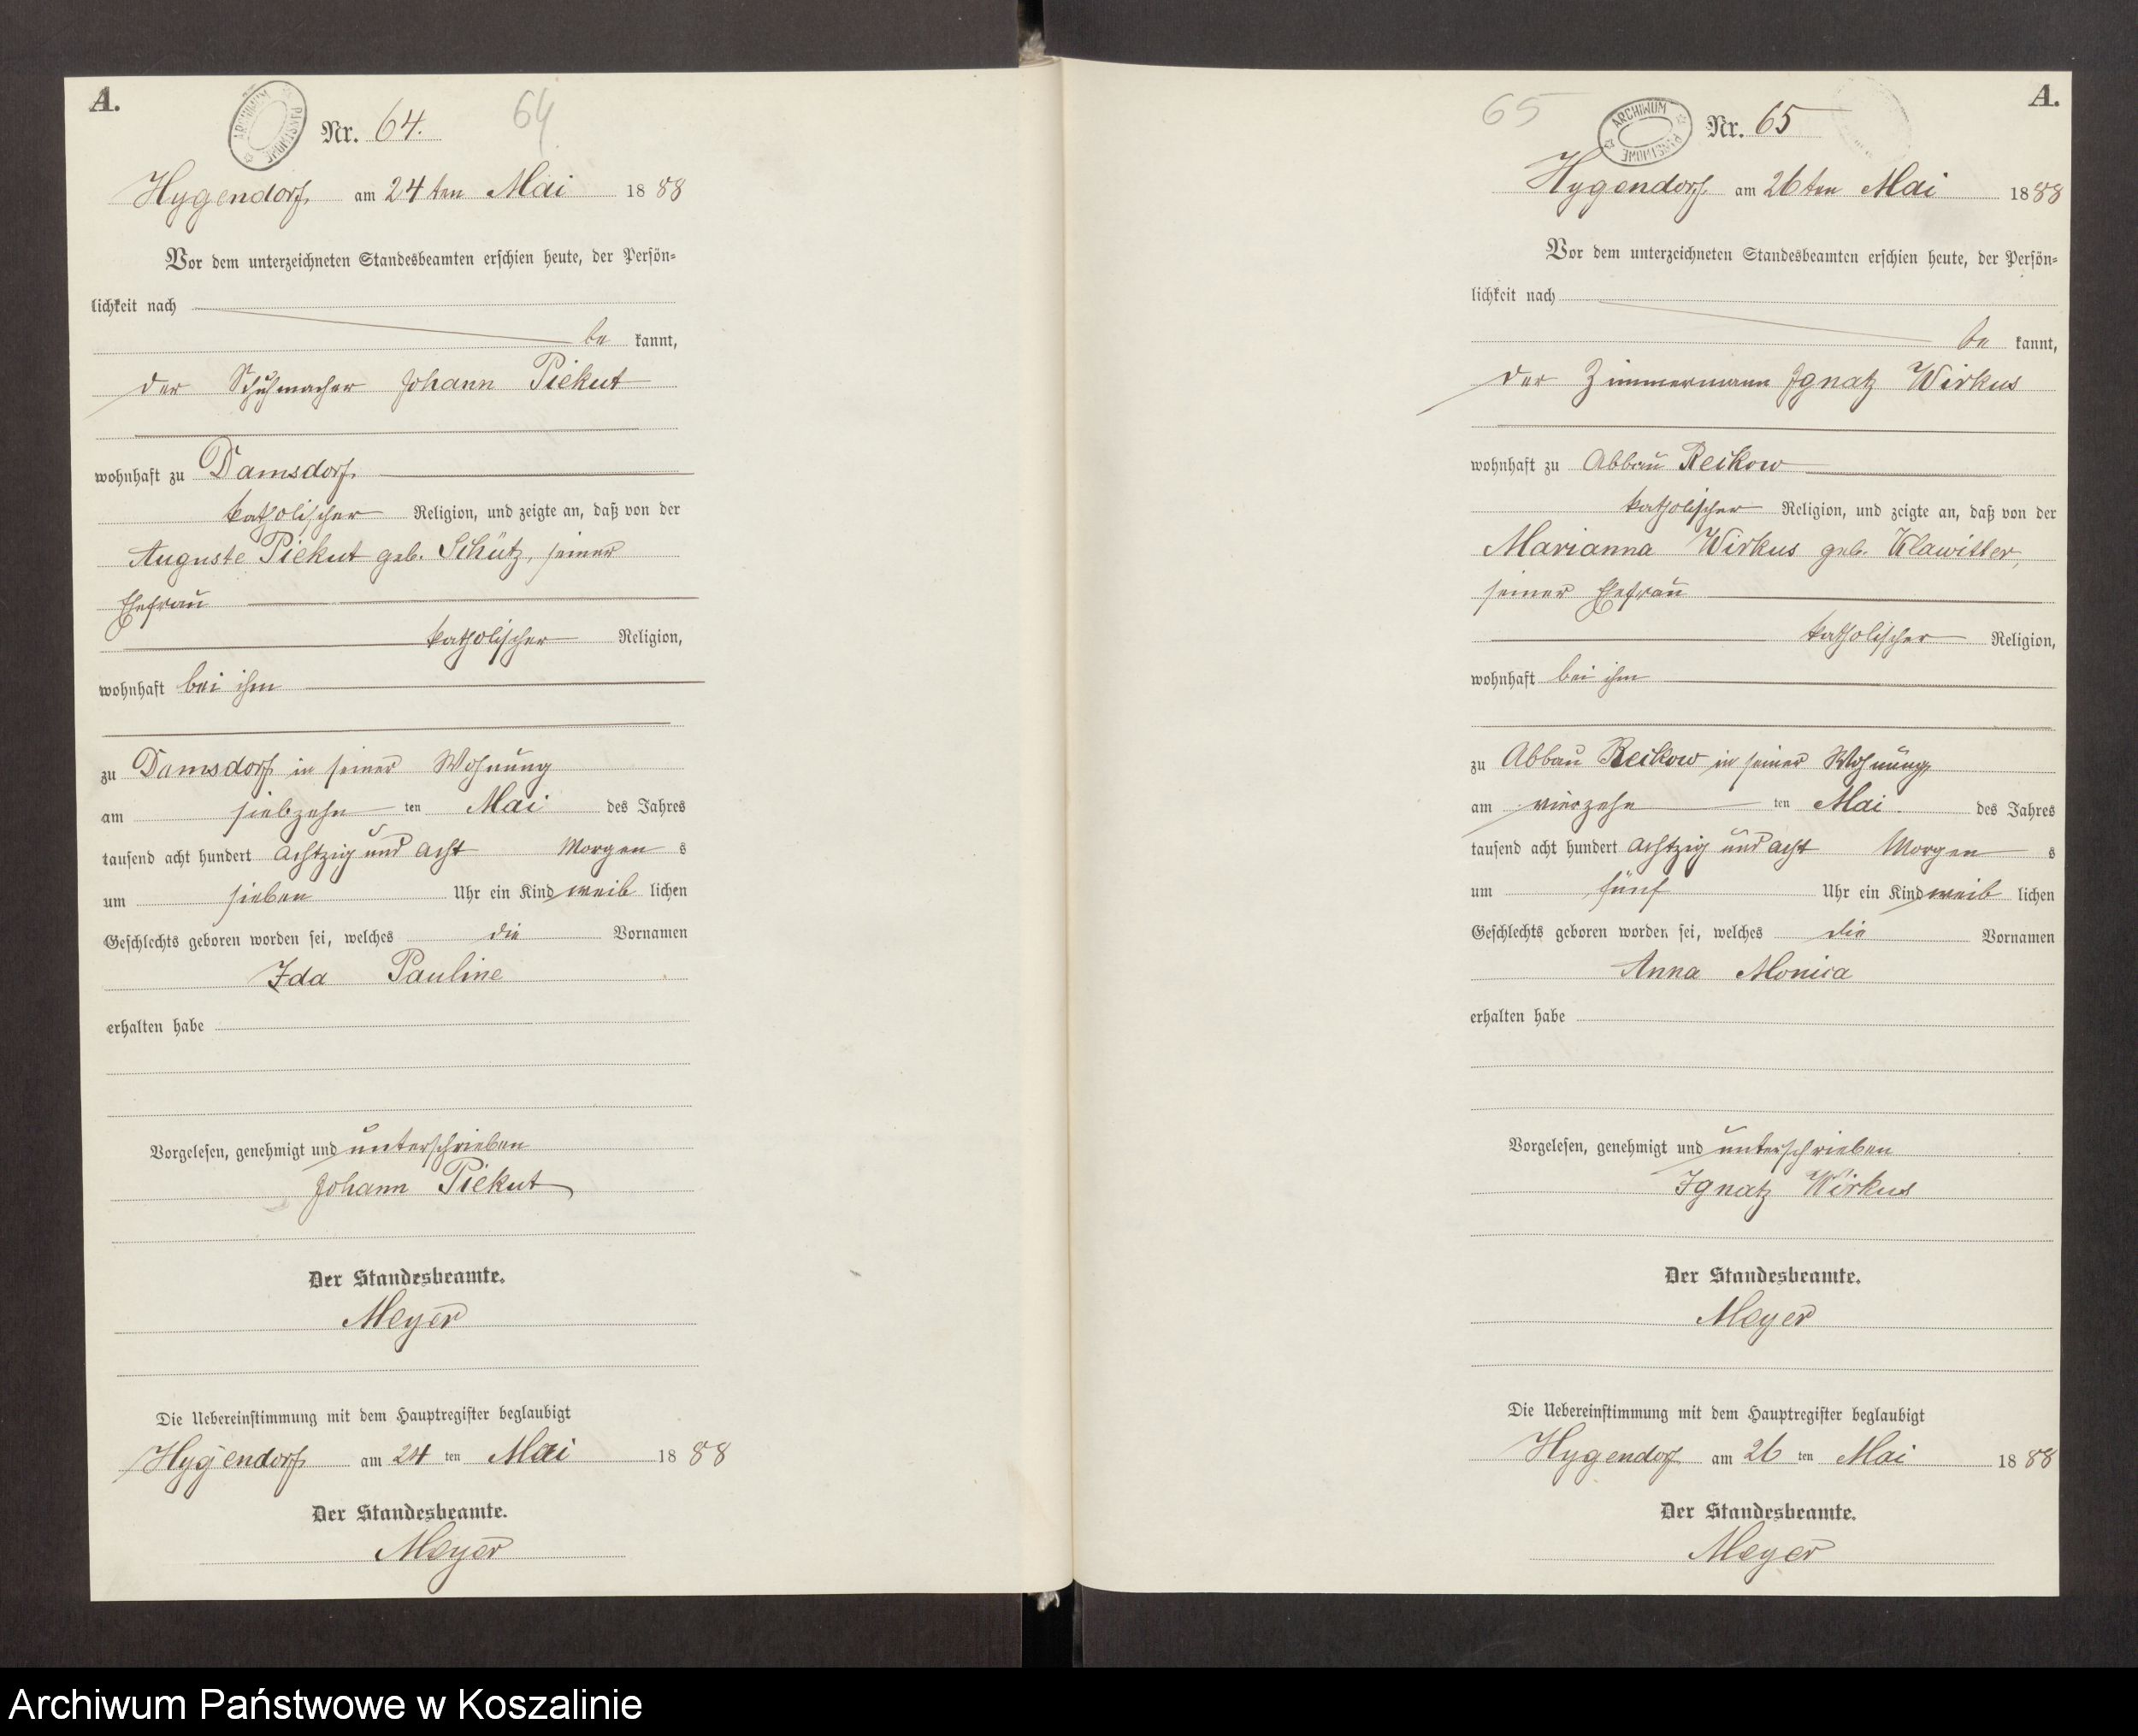 A.
ARCHIWUM PAŃSTWOWE
Nr. 64.
64
Hygendorf am 24ten Mai 1888
Vor dem unterzeichneten Standesbeamten erschien heute, der Persön-
lichkeit nach
be kannt,
der Schuhmacher Johann Piekut
wohnhaft zu Damsdorf
katholischer Religion, und zeigte an, daß von der
Auguste Piekut geb. Schütz, seiner
Ehefrau
katholischer Religion,
wohnhaft bei ihm
zu Damsdorf in seiner Wohnung
am siebzehn ten Mai des Jahres
tausend acht hundert achtzig und acht Morgen s
um sieben Uhr ein Kind weib lichen
Geschlechts geboren worden sei, welches die Vornamen
Ida Pauline
erhalten habe
Vorgelesen, genehmigt und unterschrieben
Johann Piekut
Der Standesbeamte.
Meyer
Die Uebereinstimmung mit dem Hauptregister beglaubigt
Hygendorf am 24 ten Mai 1888
Der Standesbeamte.
Meyer
A.
65
ARCHIWUM PAŃSTWOWE
Nr. 65
Hygendorf am 26ten Mai 1888
Vor dem unterzeichneten Standesbeamten erschien heute, der Persön-
lichkeit nach
be kannt,
der Zimmermann Ignatz Wirkus
wohnhaft zu Abbau Reckow
katholischer Religion, und zeigte an, daß von der
Marianna Wirkus geb. Klawitter,
seiner Ehefrau
katholischer Religion,
wohnhaft bei ihm
zu Abbau Reckow in seiner Wohnung
am vierzehn ten Mai des Jahres
tausend acht hundert achtzig und acht Morgen s
um fünf Uhr ein Kind weib lichen
Geschlechts geboren worden sei, welches die Vornamen
Anna Monica
erhalten habe
Vorgelesen, genehmigt und unterschrieben
Ignatz Wirkus
Der Standesbeamte.
Meyer
Die Uebereinstimmung mit dem Hauptregister beglaubigt
Hygendorf am 26 ten Mai 1888
Der Standesbeamte.
Meyer
Archiwum Państwowe w Koszalinie